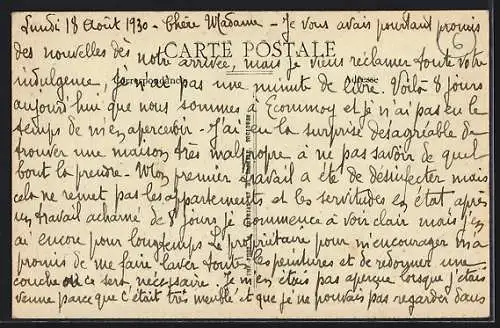 Lundi 18 Août 1930 - Chère Madame - Je vous avais pourtant promis
des nouvelles dès notre arrivée, mais je viens réclamer toute votre
CARTE POSTALE
indulgence, je n'ai pas une minute de libre. Voilà 8 jours
Correspondance
Adresse
aujourd'hui que nous sommes à Ecommoy et je n'ai pas eu le
temps de m'en apercevoir - J'ai eu la surprise désagréable de
trouver une maison très malpropre à ne pas savoir de quel
bout la prendre. Mon premier travail a été de désinfecter mais
cela ne remet pas les appartements et les servitudes en état après
un travail acharné de 8 jours je commence à voir clair mais j'en
ai encore pour longtemps. Le propriétaire pour m'encourager m'a
promis de me faire laver toutes les peintures et de redonner une
couche où ce sera nécessaire. Je m'en étais pas aperçue lorsque j'étais
venue parce que c'était très meublé et que je ne pouvais pas regarder dans
6